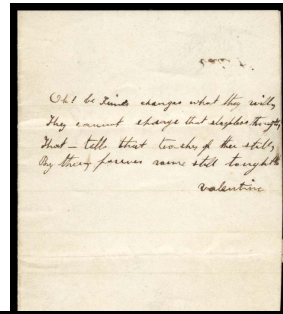 Oh! be Times changes what they will,
They cannot change that sleepless thought,
That – tells, that teaches of thee still,
By thee, forever more still taught
Valentine